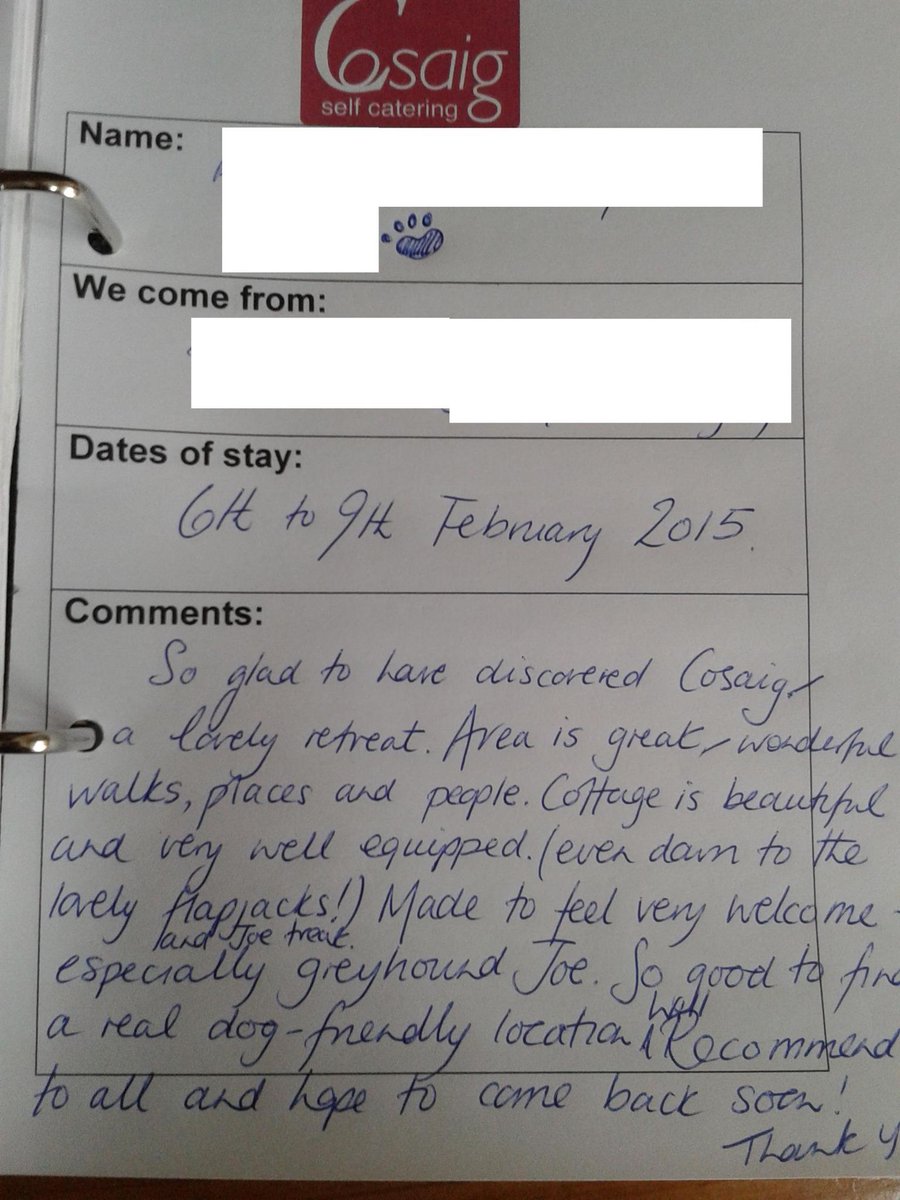 Cosaig
self catering
Name:
We come from:
Dates of stay:
6th to 9th February 2015.
Comments:
So glad to have discovered Cosaig,
a lovely retreat. Area is great, wonderful
walks, places and people. Cottage is beautiful
and very well equipped. (even down to the
lovely flapjacks!) Made to feel very welcome -
and Joe treat.
especially greyhound Joe. So good to find
a real dog-friendly location. Will Recommend
to all and hope to come back soon!
Thank y